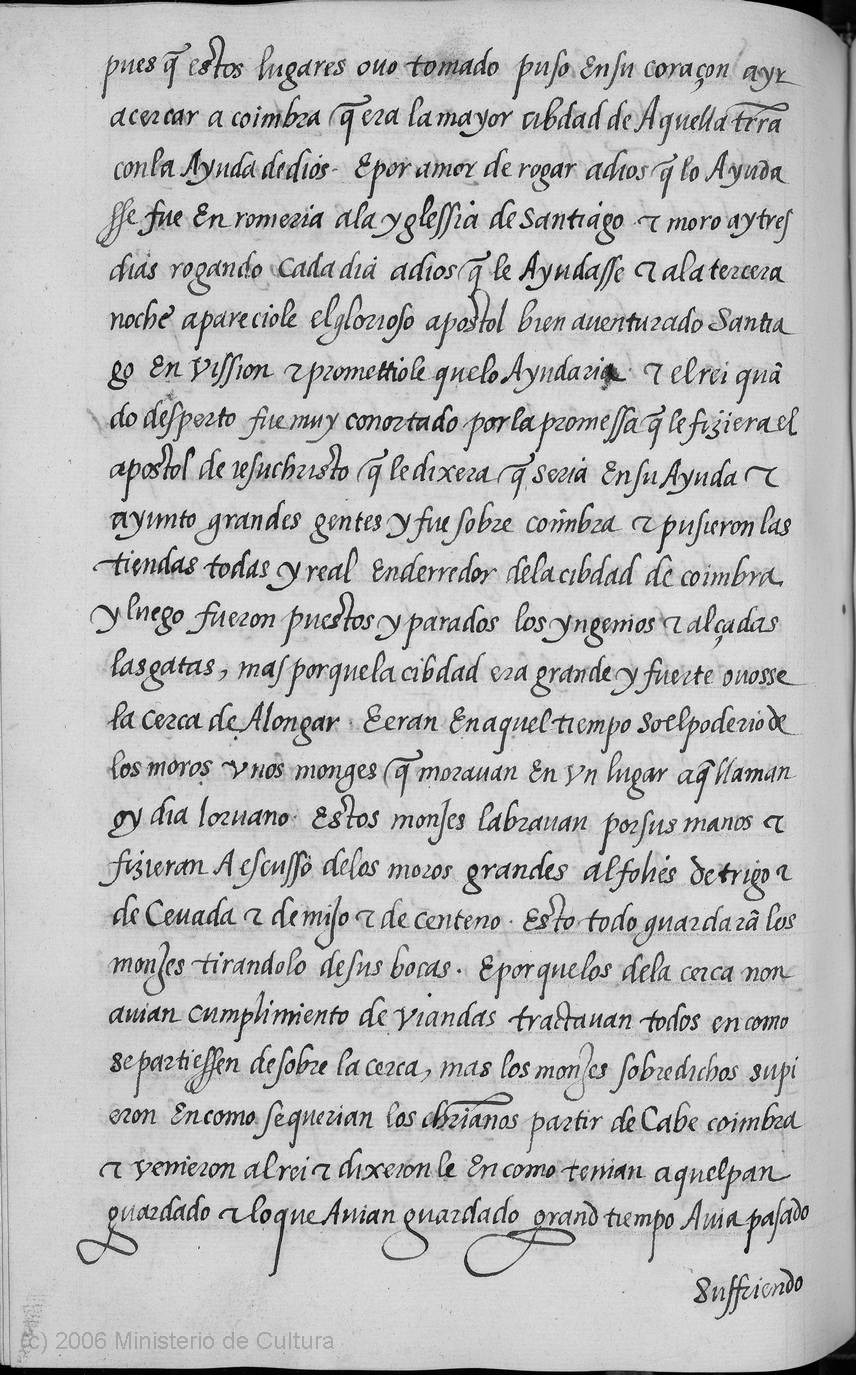 pues q̃ estos lugares ovo tomado puso Ensu coraçon ayr
acercar a coimbra q̃ era la mayor cibdad de Aquella trr̃a
con la Ayuda de dios. E por amor de rogar adios q̃ lo Ayuda
sse fue En romeria ala yglessia de Santiago τ moro ay tres
dias rogando cada dia adios q̃ le Ayudasse τ ala tercera
noche apareciole el glorioso apostol bien aventurado Santia
go En Vission τ promettiole que lo Ayudaria τ el rei quã
do desperto fue muy conortado por la promessa q̃ le fiziera el
apostol de iesuchristo q̃ le dixera q̃ seria En su Ayuda τ
ayunto grandes gentes y fue sobre coimbra τ pusieron las
tiendas todas y real Enderredor dela cibdad de coimbra
y luego fueron puestos y parados los yngenios τ alçadas
las gatas, mas por que la cibdad era grande y fuerte ovosse
la cerca de Alongar. E eran En aquel tiempo so el poderio de
los moros vnos monges q̃ moravan En vn lugar a q̃ llaman
oy dia loruano. Estos monjes labravan por sus manos τ
fizieran A escusso delos moros grandes alfolies de trigo τ
de Cevada τ de mijo τ de centeno. Esto todo guardarã los
monjes tirandolo de sus bocas. E por que los dela cerca non
avian cumplimiento de viandas tractavan todos en como
se partiessen de sobre la cerca, mas los monjes sobredichos supi
eron En como se querian los chrĩanos partir de Cabe coimbra
τ venieron al rei τ dixeron le En como tenian aquel pan
guardado τ lo que Avian guardado grand tiempo Avia pasado
Suffriendo
(c) 2006 Ministerio de Cultura